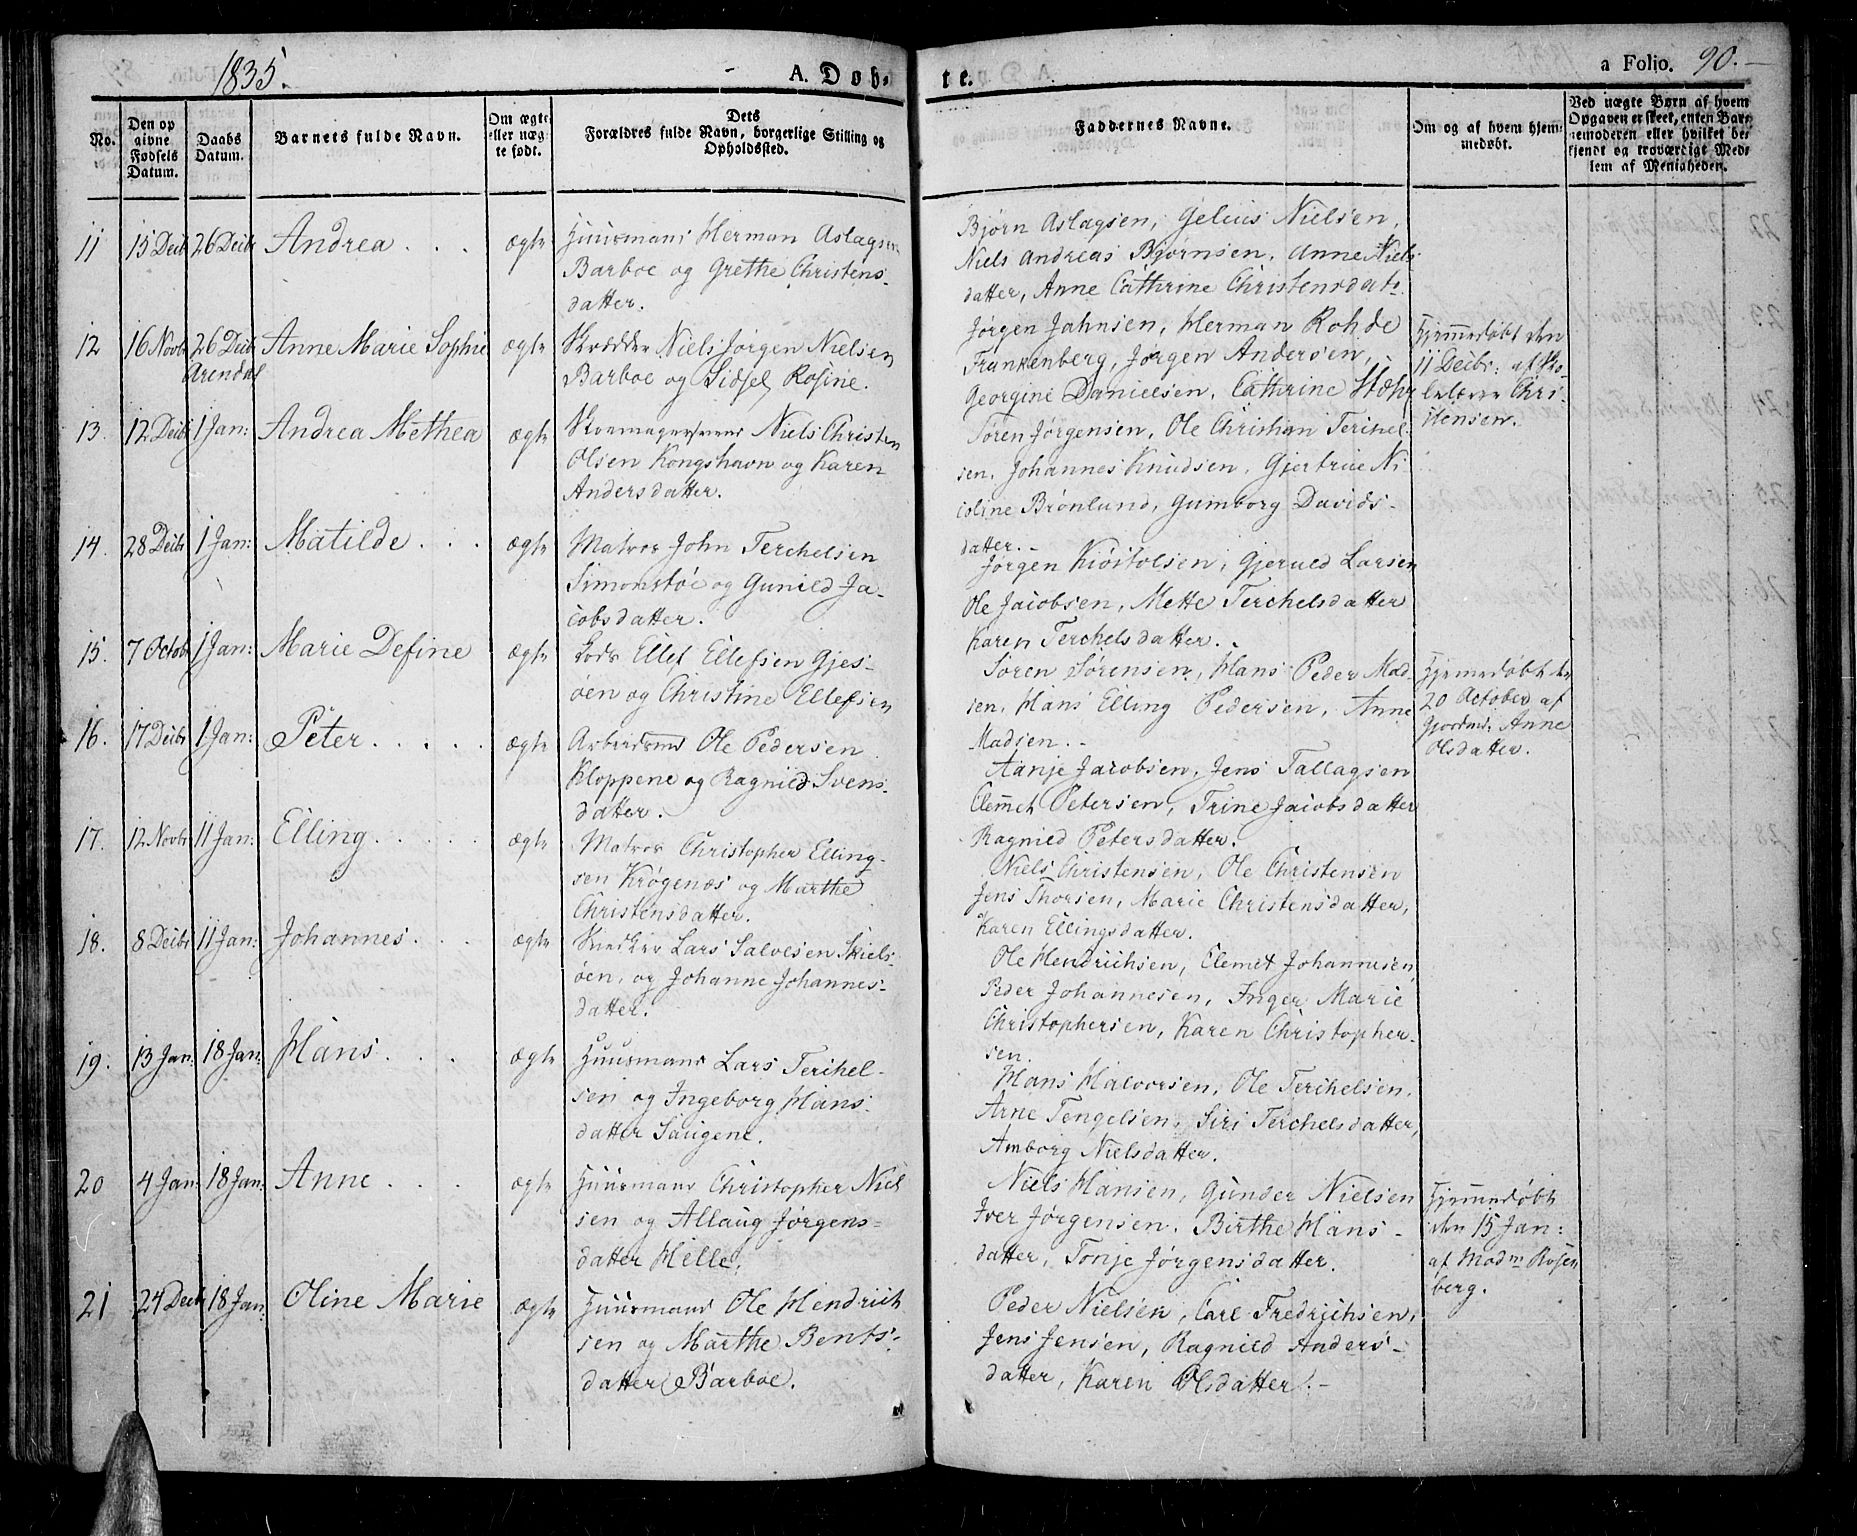 1835.
A. Døb-
te.
a Folio. 90.
No.
Den op
givne
Fødsels
Datum.
Daabs
Datum.
Barnets fulde Navn.
Om ægte
eller uæg
te født.
Dets
Forældres fulde Navn, borgerlige Stilling og
Opholdssted.
Faddernes Navne.
Om og af hvem hjem-
medøbt.
Ved uægte Børn af hvem
Opgaven er skeet, enten Bar-
nemoderen eller hvilket be
kjendt og troværdigt Med-
lem af Menigheden.
11 15 Decbr 26 Decbr Andrea . . . ægte Huusmand Herman Aslagsen
Barboe og Grethe Christens-
datter.
Bjørn Aslagsen, Gelius Nielsen,
Niels Andreas Bjørnsen, Anne Niels
datter, Anne Cathrine Christensdatr.
12 16 Novbr 26 Decbr Anne Marie Sophie ægte Skrædder Niels Jørgen Nielsen
Arendal
Barboe og Sidsel Rosine.
Jørgen Jahnsen, Herman Rohde
Frankenberg, Jørgen Andersen,
Georgine Danielsen, Cathrine Stæhr
Hjemmedøbt den
11 Decbr: af Sko-
lelærer Chri-
stensen.
13. 12 Decbr 1 Jan: Andrea Methea ægte Skoemagersvend Niels Christen
Olsen Kongshavn og Karen
Andersdatter.
Søren Jørgensen, Ole Christian Terchel-
sen, Johannes Knudsen, Gjertrue Ni-
coline Brønlund, Gumborg Davids-
datter.-
14. 28 Decbr 1 Jan: Matilde . . . ægte Matros John Terchelsen
Simonstøe og Gunild Ja-
cobsdatter.
Jørgen Kiøstolsen, Gjeruld Larsen
Ole Jacobsen, Mette Terchelsdatter
Karen Terchelsdatter.
15. 7 Octobr 1 Jan: Marie Define ægte Lods Ellef Ellefsen Gjes-
øen og Christine Ellefsen
Søren Sørensen, Hans Peder Mad-
sen, Hans Elling Pedersen, Anne
Madsen.-
Hjemmedøbt den
20 October af
Gjordmd. Anne
Olsdatter.
16. 17 Decbr 1 Jan: Peter . . . . . ægte Arbeidsmd Ole Pedersen
Kloppene og Ragnild Svens-
datter.
Aanje Jacobsen, Jens Tallagsen
Clemet Petersen, Trine Jacobsdatter
Ragnild Petersdatter.
17. 12 Novbr 11 Jan: Elling . . . . ægte Matros Christopher Elling-
sen Krøgenæs og Marthe
Christensdatter.
Niels Christensen, Ole Christensen
Jens Thorsen, Marie Christensdatter,
Karen Ellingsdatter.
18. 8 Decbr 11 Jan: Johannes . . . ægte Snedker Lars Salvesen Skiels-
øen, og Johanne Johannes-
datter.
Ole Hendrichsen, Clemet Johannesen,
Peder Johannesen, Inger Marie
Christophersen, Karen Christopher-
sen.
19. 13 Jan: 18 Jan: Hans . . . ægte Huusmand Lars Terchel-
sen og Ingeborg Hans-
datter Saugene.
Hans Halvorsen, Ole Terchelsen,
Arne Tengelsen, Siri Terchelsdatter,
Amborg Nielsdatter.
20 4 Jan: 18 Jan: Anne . . . ægte Huusmand Christopher Niel
sen og Allaug Jørgens-
datter Hille.
Niels Hansen, Gunder Nielsen
Iver Jørgensen, Birthe Hans-
datter, Tonje Jørgensdatter.
Hjemmedøbt
den 15 Jan:
af Madm Rosen
berg.
21 24 Decbr 18 Jan: Oline Marie ægte Huusmand Ole Hendrich
sen og Marthe Bents-
datter Barboe.
Peder Nielsen, Carl Fredrichsen,
Jens Jensen, Ragnild Anders-
datter, Karen Olsdatter.-